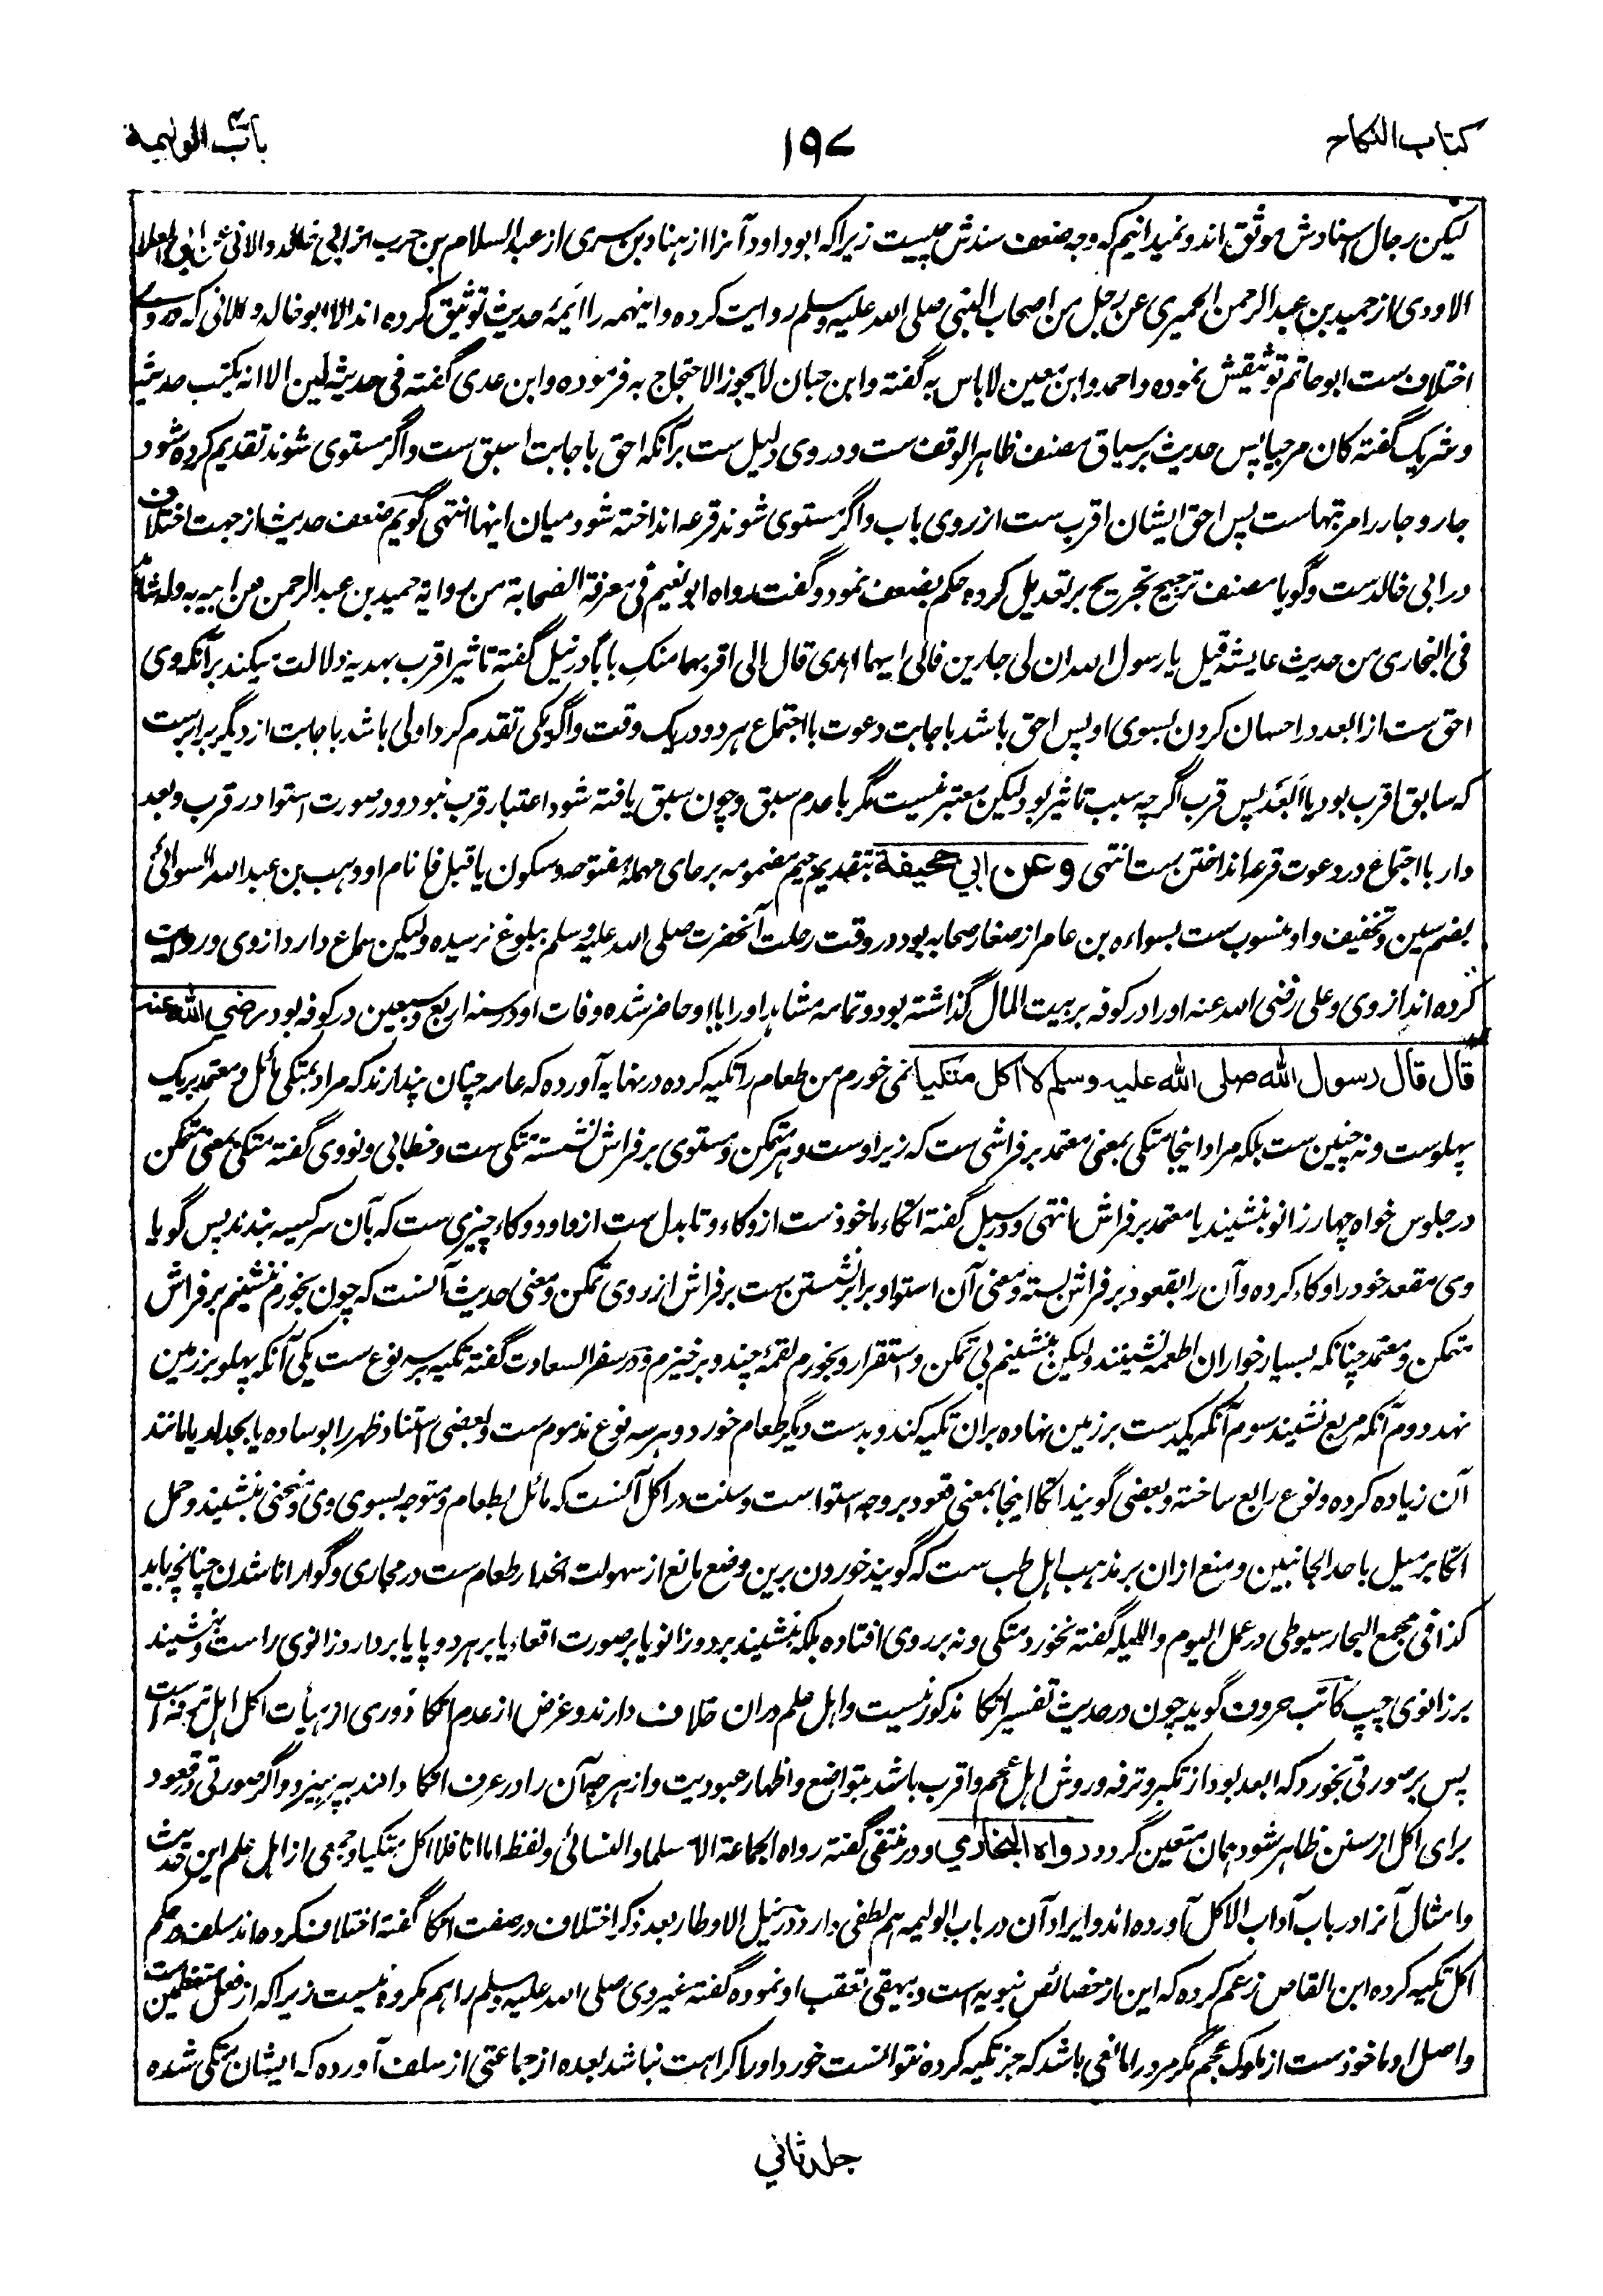 کتاب النکاح
۱۹۷
باب الولیمة
لیکن رجال اسنادش موثق اند و نمیدانیم که وجه ضعف سندش چیست زیراکه ابوداود آنرا از هناد بن سری از عبد السلام بن حرب از ابی خالد دالانی عن ابی العلا
الاودی از حمید بن عبد الرحمن الحمیری عن رجل من اصحاب النبی صلی الله علیه وسلم روایت کرده و اینهمه را ائمهٔ حدیث توثیق کرده اند الا ابو خالد دالانی که در وی
اختلاف ست ابو حاتم توثیقش نموده و احمد و ابن معین لاباس به گفته و ابن حبان لا یجوز الاحتجاج به فرموده و ابن عدی گفته فی حدیثه لین الا انه یکتب حدیثه
و شریک گفته کان مرجیا پس حدیث بر سیاق مصنف ظاهر الوقف ست و در وی دلیل ست بر آنکه احق باجابت اسبق ست و اگر مستوی شوند تقدیم کرده شود
جار و جار را مرتبهاست پس احق ایشان اقرب ست از روی باب و اگر مستوی شوند قرعه انداخته شود میان اینها انتهی گویم ضعف حدیث از جهت اختلاف
در ابی خالد ست و گویا مصنف ترجیح تجریح بر تعدیل کرده حکم بضعف نمود و گفت رواه ابو نعیم فی معرفة الصحابة من روایة حمید بن عبد الرحمن عن ابیه به وله شاهد
فی البخاری من حدیث عایشة قیل یا رسول الله ان لی جارین فالی ایهما اهدی قال الی اقربهما منک بابا در نیل گفته تاثیر اقرب بهدیه دلالت میکند بر آنکه وی
احق ست از ابعد در احسان کردن بسوی او پس احق باشد باجابت دعوت با اجتماع هر دو در یک وقت و اگر یکی تقدم کرد اولی باشد باجابت از دیگر برابرست
که سابق اقرب بود یا ابعد پس قرب اگرچه سبب تاثیر بود لیکن معتبر نیست مگر با عدم سبق و چون سبق یافته شود اعتبار قرب نبود و در صورت استوا در قرب و بعد
دار با اجتماع در دعوت قرعه انداختن ست انتهی وعن ابي جحيفة بتقدیم جیم مضمومه بر حای مهملهٔ مفتوحه و سکون یا قبل فا نام او وهب بن عبد الله السوائی
بضم سین و تخفیف واو منسوب ست بسواءه بن عامر از صغار صحابه بود در وقت رحلت آنحضرت صلی الله علیه وسلم ببلوغ نرسیده ولیکن سماع دارد از وی و روایت
کرده اند از وی و علی رضی الله عنه او را در کوفه بر بیت المال گذاشته بود و تمامه مشاهد او را با او حاضر شده وفات او در سنه اربع و سبعین در کوفه بود رضي الله عنه
قال قال رسول الله صلى الله عليه وسلم لا آكل متكيا نمی خورم من طعام را تکیه کرده در نهایه آورده که عامه چنان پندارند که مراد بمتکی مائل و معتمد بر یک
پهلوست و نه چنین ست بلکه مراد اینجا متکی بمعنی معتمد بر فراشی ست که زیر اوست و هر متمکن و مستوی بر فراش نشسته متکی ست و خطابی و نووی گفته متکی بمعنی متمکن
در جلوس خواه چهار زانو بنشیند یا معتمد بر فراش انتهی و در سبل گفته اتکاء ماخوذ ست از وکاء و تا بدل ست از واو و وکاء چیزی ست که بآن سر کیسه بندند پس گویا
وی مقعد خود را وکاء کرده و آن را بقعود بر فراش بسته و معنی آن استوا و برابر نشستن ست بر فراش از روی تمکن و معنی حدیث آنست که چون بخورم ننشینم بر فراش
متمکن و معتمد چنانکه بسیار خواران اطعمه نشینند و لیکن بنشینم بی تمکن و استقرار و بخورم لقمهٔ چند و برخیزم و در سفر السعادت گفته تکیه بر سه نوع ست یکی آنکه پهلو بر زمین
نهد دوم آنکه مربع نشیند سوم آنکه یکدست بر زمین نهاده بران تکیه کند و بدست دیگر طعام خورد و هر سه نوع مذموم ست و بعضی استناد ظهر را بوساده یا بجدار یا مانند
آن زیاده کرده و نوع رابع ساخته و بعضی گویند اتکا اینجا بمعنی قعود بر وجه استواست و سنت در اکل آنست که مائل بطعام و متوجه بسوی وی و منحنی بنشیند و حمل
اتکا بر میل باحد الجانبین و منع ازان بر مذهب اهل طب ست که گویند خوردن برین وضع مانع از سهولت انحدار طعام ست در مجاری و گوارا ناشدن چنانچه باید
کذا فی مجمع البحار سیوطی در عمل الیوم واللیله گفته نخورد متکی و نه بر روی افتاده بلکه بنشیند بر دو زانو یا بر صورت اقعاء یا بر هر دو پا یا بردارد زانوی راست و بنشیند
بر زانوی چپ کاتب حروف گوید چون در حدیث تفسیر اتکا مذکور نیست و اهل علم دران خلاف دارند و غرض از عدم اتکا دوری از هیأت اکل اهل ترفه است
پس بر صورتی بخورد که ابعد بود از تکبر و ترفه و روش اهل عجم و اقرب باشد بتواضع و اظهار عبودیت و از هرچه آن را در عرف اتکا دانند بپرهیزد و اگر صورتی در قعود
برای اکل از سنن ظاهر شود همان متعین گردد رواه البخاري و در منتقی گفته رواه الجماعة الا مسلما والنسائی و لفظ اما انا فلا اکل متکیا و جمعی از اهل علم این حدیث
و امثال آنرا در باب آداب الاکل آورده اند و ایراد آن در باب الولیمه هم لطفی دارد در نیل الاوطار بعد ذکر اختلاف در صفت اتکا گفته اختلاف کرده اند سلف در حکم
اکل تکیه کرده ابن القاص زعم کرده که این از خصائص نبویه است و بیهقی تعقب او نموده گفته غیر وی صلی الله علیه وسلم را هم مکروه نیست زیراکه از فعل متعظمین ست
و اصل او ماخوذ ست از ملوک عجم مگر مرد را مانعی باشد که جز تکیه کرده نتوانست خورد او را کراهت نباشد بعده از جماعتی از سلف آورده که ایشان متکی شده
جلد ثاني